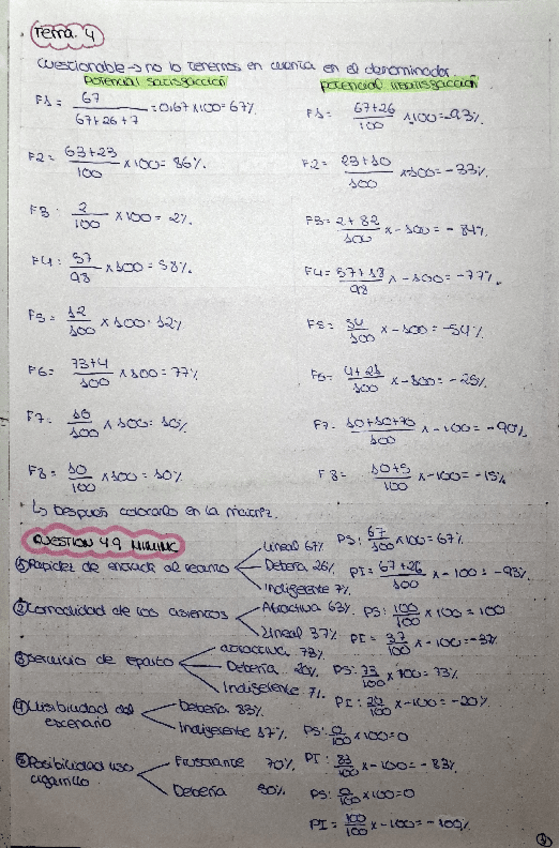 Tema. 4
Cuestionable → no lo tenemos en cuenta en el denominador.
Potencial satisfacción
Potencial insatisfacción
F1 = 67 / 67+26+7 = 0,67 x100 = 67%
F1 = 67+26 / 100 x100 = -93%
F2 = 63+23 / 100 x 100 = 86%
F2 = 23+10 / 100 x-100 = -33%
F3 = 2 / 100 x 100 = 2%
F3 = 2+82 / 100 x -100 = -84%
F4 = 57 / 98 x 100 = 58%
F4 = 57+18 / 98 x -100 = -77%
F5 = 12 / 100 x 100 = 12%
F5 = 54 / 100 x -100 = -54%
F6 = 73+4 / 100 x 100 = 77%
F6 = 4+21 / 100 x -100 = -25%
F7 = 10 / 100 x 100 = 10%
F7 = 10+10+70 / 100 x -100 = -90%
F8 = 10 / 100 x 100 = 10%
F8 = 10+5 / 100 x -100 = -15%
↳ Después colocarlo en la matriz.
CUESTION 4.9 MIMINC
① Rapidez de entrada al recinto
Lineal 67%
Debería 26%
Indiferente 7%
PS: 67 / 100 x 100 = 67%
PI = 67+26 / 100 x -100 = -93%
② Comodidad de los asientos
Atractiva 63%
Lineal 37%
PS: 100 / 100 x 100 = 100
PI = 37 / 100 x -100 = -37%
③ Servicio de
atractiva 73%
Debería 20%
Indiferente 7%
PS: 73 / 100 x 100 = 73%
PI: 20 / 100 x -100 = -20%
④ Visibilidad del escenario
Debería 83%
Indiferente 17%
PS: 0 / 100 x 100 = 0
PI: 83 / 100 x -100 = -83%
⑤ Posibilidad uso cigarrillo
Frustrante 70%
Debería
PS: 0 / 100 x 100 = 0
PI = 100 / 100 x -100 = -100%
①